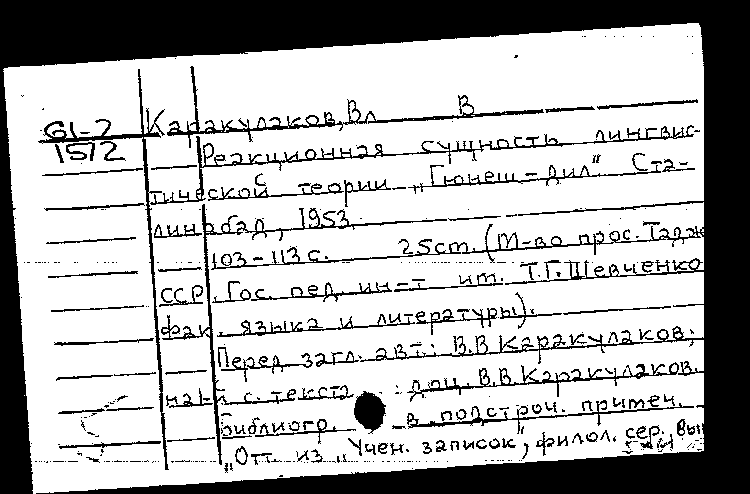 61-7 Каракулаков, Вл В
1572 Реакционная сущность лингвис-
тической теории „Гюнеш-дил“ Ста-
линабад, 1953.
103-113 с. 25 cm. (М-во прос. Тадж
ССР. Гос. пед. ин-т им. Т.Г. Шевченко
фак. языка и литературы).
Перед загл. авт.: В.В Каракулаков;
на 1-й с. текста : доц. В.В. Каракулаков.
Библиогр. в подстроч. примеч.
„Отт. из „Учен. записок“, филол. сер. вып